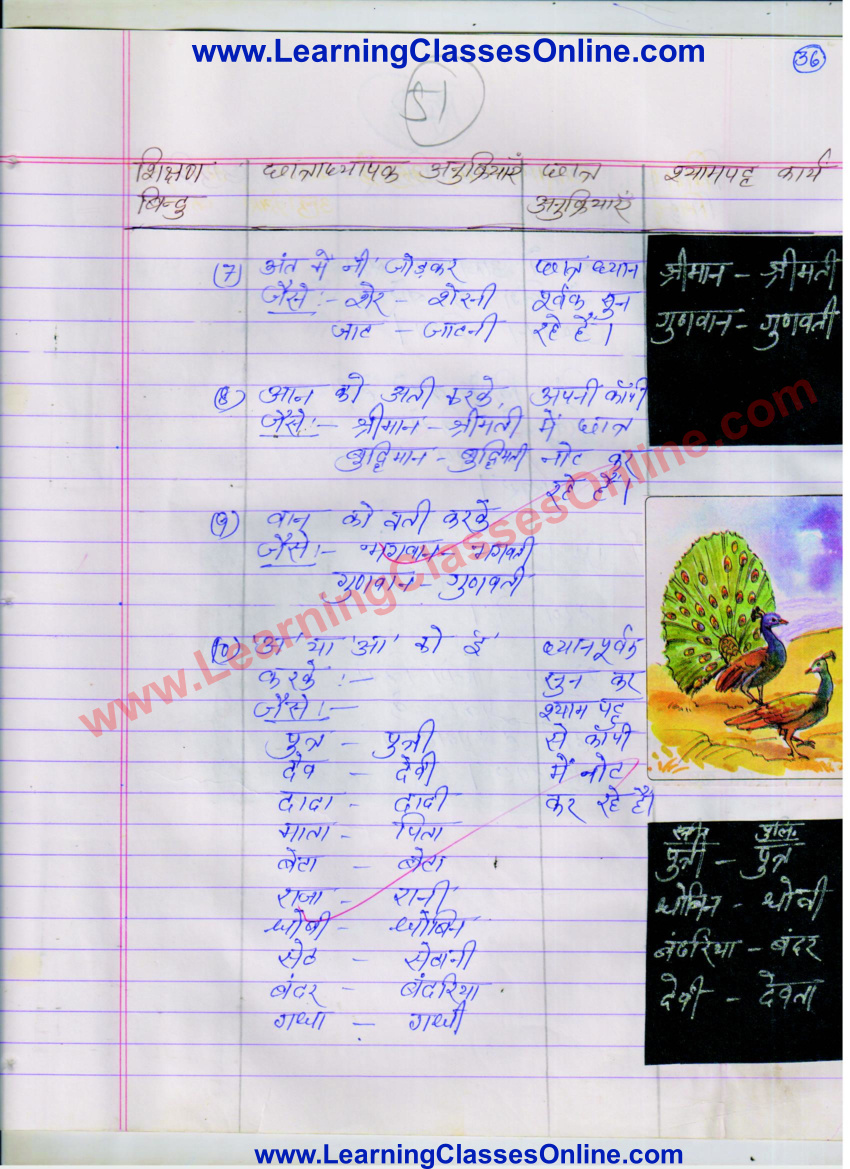 www.LearningClassesOnline.com
36
51
शिक्षण बिन्दु
छात्राध्यापक अनुक्रियाएं
छात्र अनुक्रियाएं
श्यामपट्ट कार्य
(7) अंत में नी जोड़कर
जैसे :- शेर - शेरनी
जाट - जाटनी
(8) आन को अती करके,
जैसे :- श्रीमान - श्रीमती
बुद्धिमान - बुद्धिमती
(9) वान को वती करके
जैसे :- भगवान - भगवती
गुणवान - गुणवती
(10) 'अ' या 'आ' को 'ई'
करके :-
जैसे :-
पुत्र - पुत्री
देव - देवी
दादा - दादी
माता - पिता
बेटा - बेटा
राजा - रानी
धोबी - धोबिन
सेठ - सेठानी
बंदर - बंदरिया
गधा - गधी
छात्र ध्यान
पूर्वक सुन
रहे हैं।
अपनी कॉपी
में छात्र
नोट कर
रहे हैं।
ध्यानपूर्वक
सुन कर
श्याम पट्ट
से कॉपी
में नोट
कर रहे हैं।
श्रीमान - श्रीमती
गुणवान - गुणवती
स्त्री. पुलि.
पुत्री - पुत्र
धोबिन - धोबी
बंदरिया - बंदर
देवी - देवता
www.LearningClassesOnline.com
www.LearningClassesOnline.com